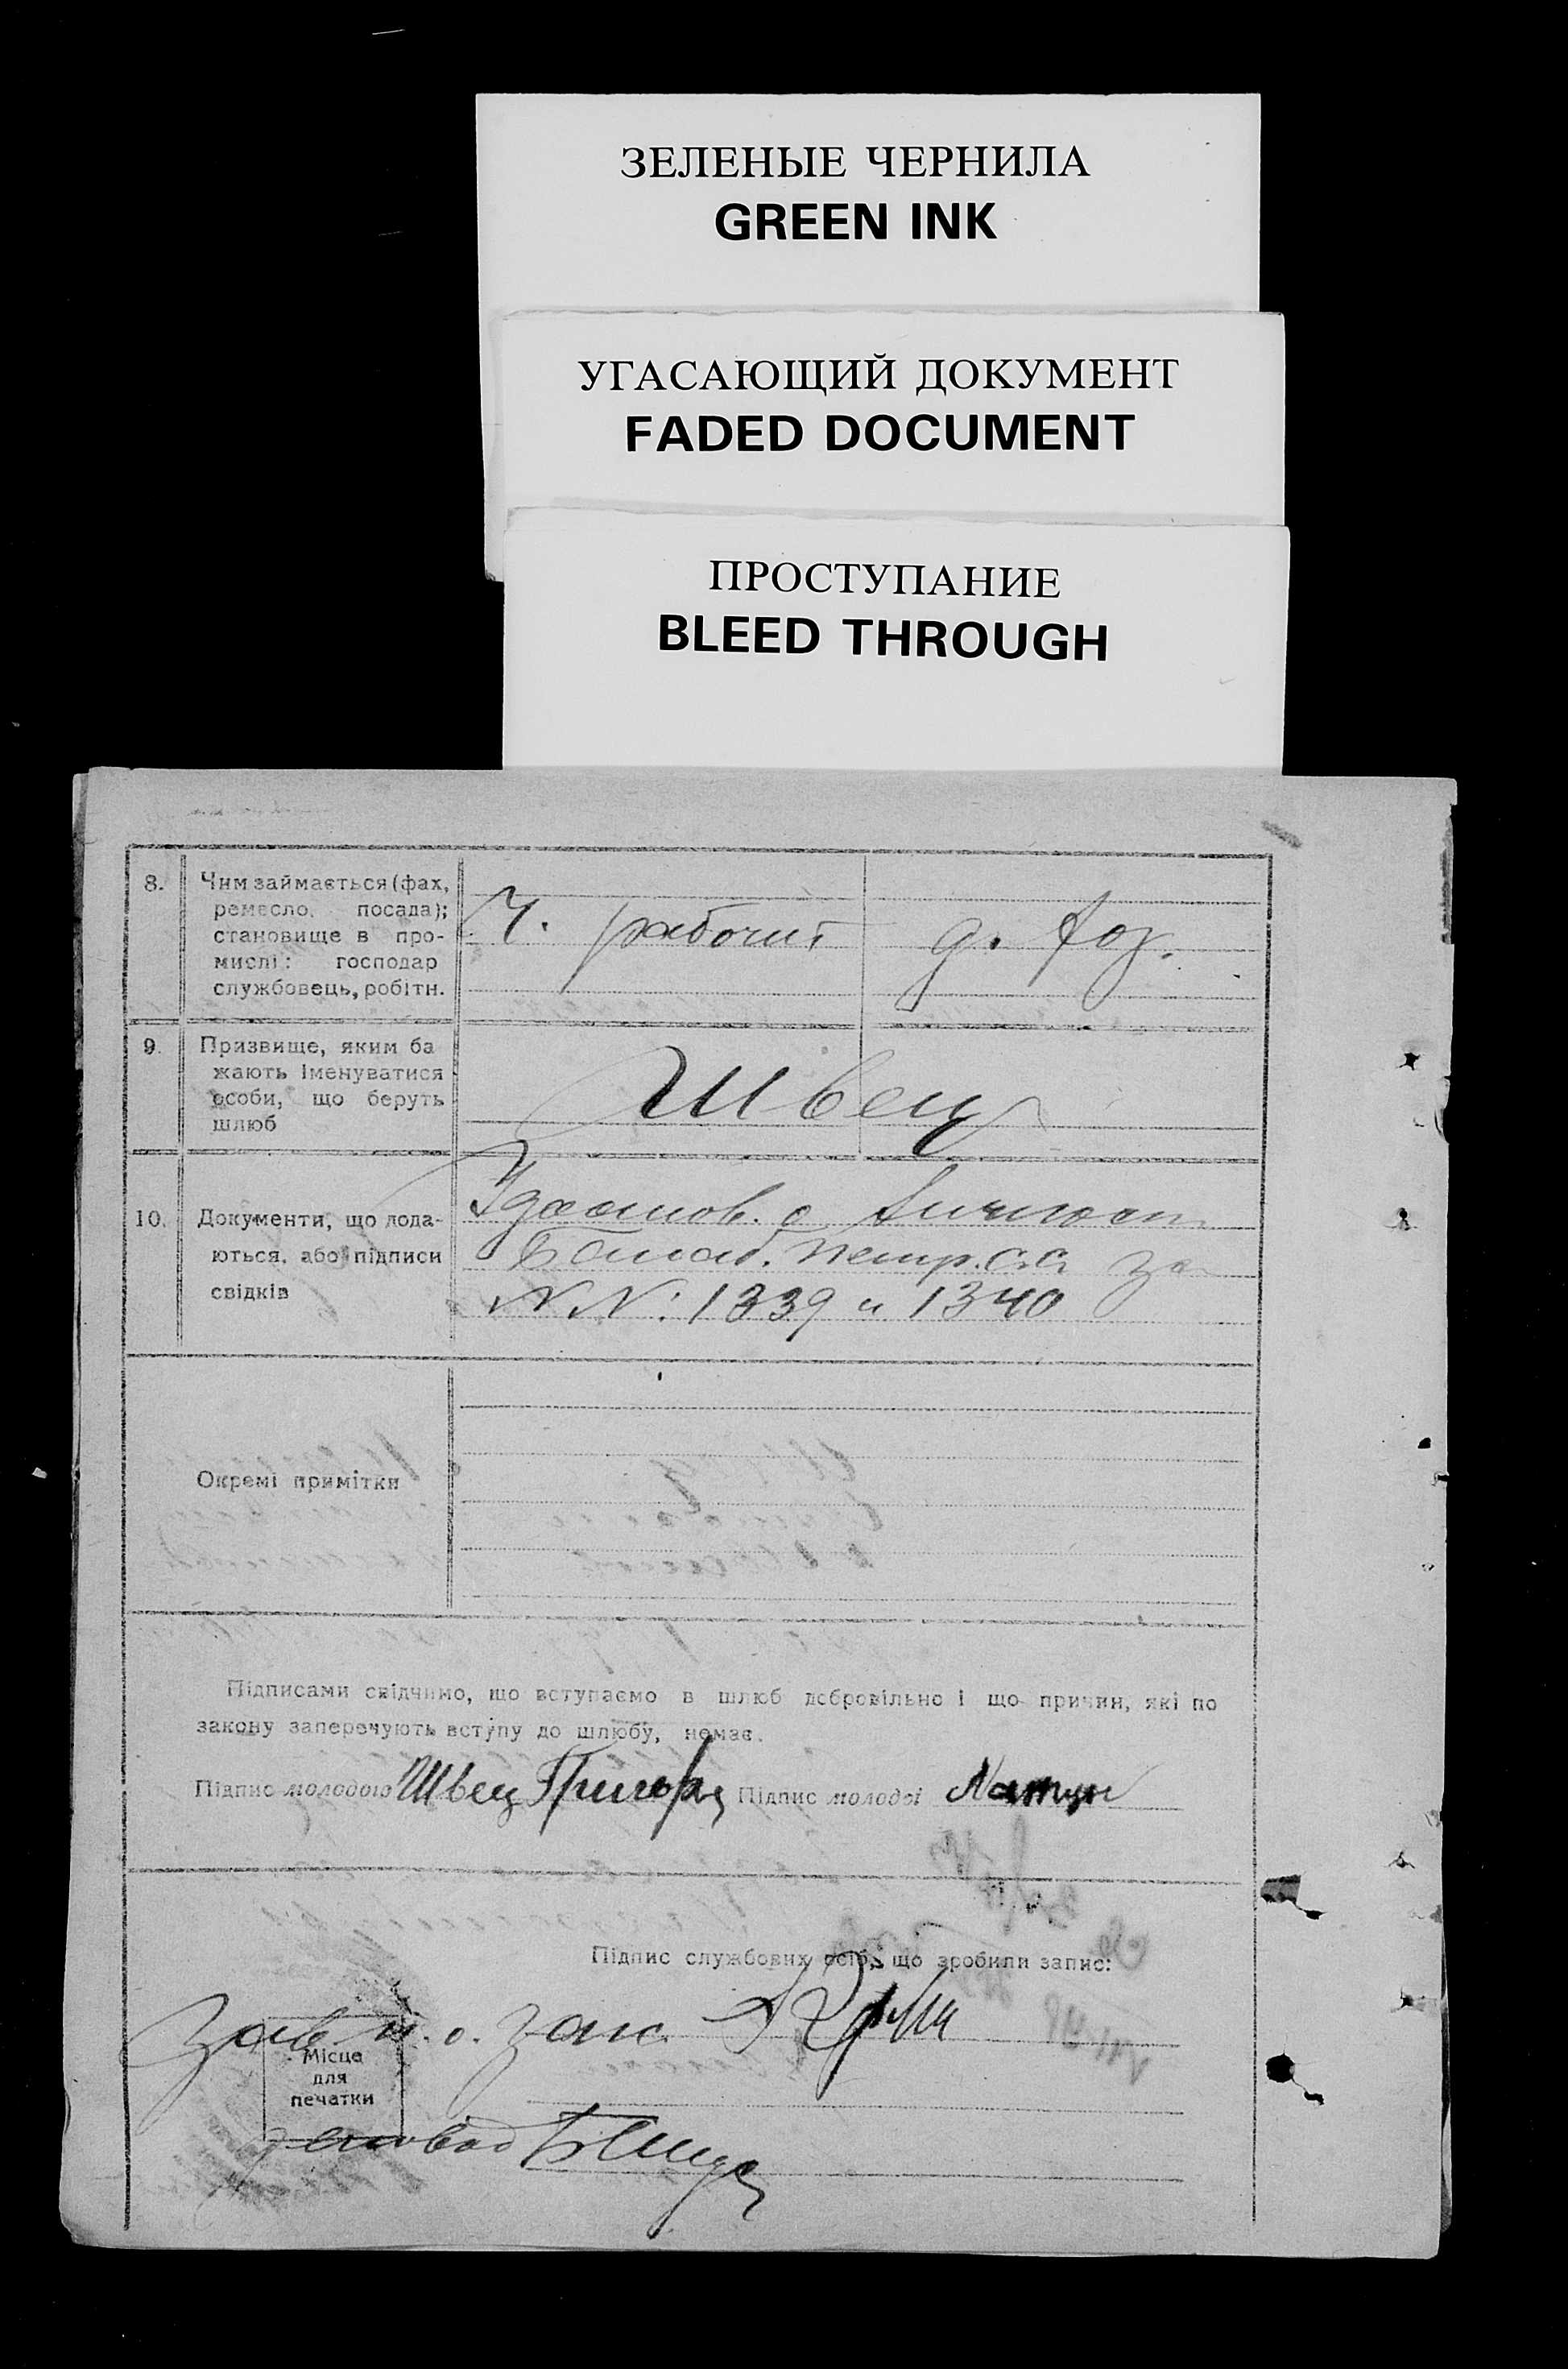 ЗЕЛЕНЫЕ ЧЕРНИЛА
GREEN INK
УГАСАЮЩИЙ ДОКУМЕНТ
FADED DOCUMENT
ПРОСТУПАНИЕ
BLEED THROUGH
8. Чим займається (фах,
ремесло, посада);
становище в про-
мислі: господар
службовець, робітн.
Ч. рабочий
д. хоз.
9. Призвище, яким ба
жають іменуватися
особи, що беруть
шлюб
Швец
10. Документи, що пода-
ються, або підписи
свідків
о личност
за
NN: 1339 и 1340
Окремі примітки
Підписами свідчимо, що вступаємо в шлюб добровільно і що причин, які по
закону заперечують вступу до шлюбу, немає.
Підпис молодого Швец Григор Підпис молодої
Підпис службових осіб, що зробили запис:
Зав. п. о. запс.
Місце
для
печатки